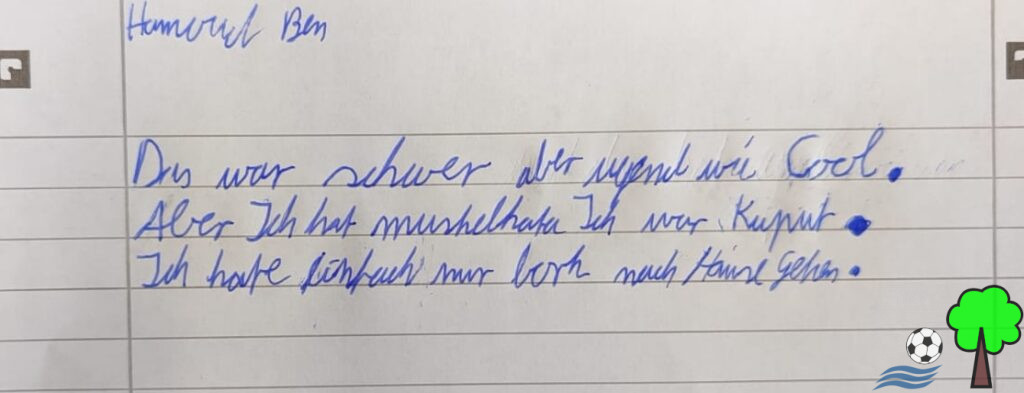 Ben
Das war schwer aber irgend wie Cool.
Aber Ich hat muskelkata Ich war Kaput.
Ich hate einfach nur bock nach Hause gehen.